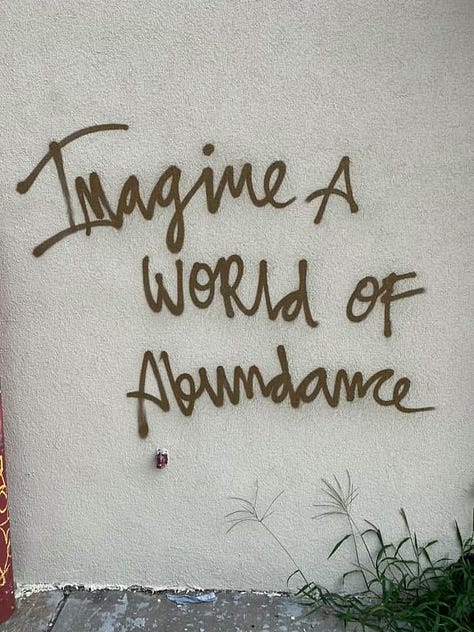 Imagine A
WORld OF
Abundance